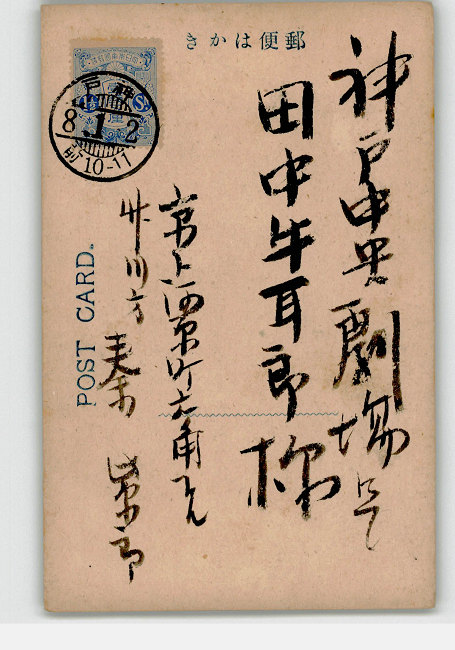 きかは便郵
神戸中央劇場にて
田中牛耳郎様
京都河原町六角
井川方
秦
POST CARD.
神戸
8.1.2
前10-11